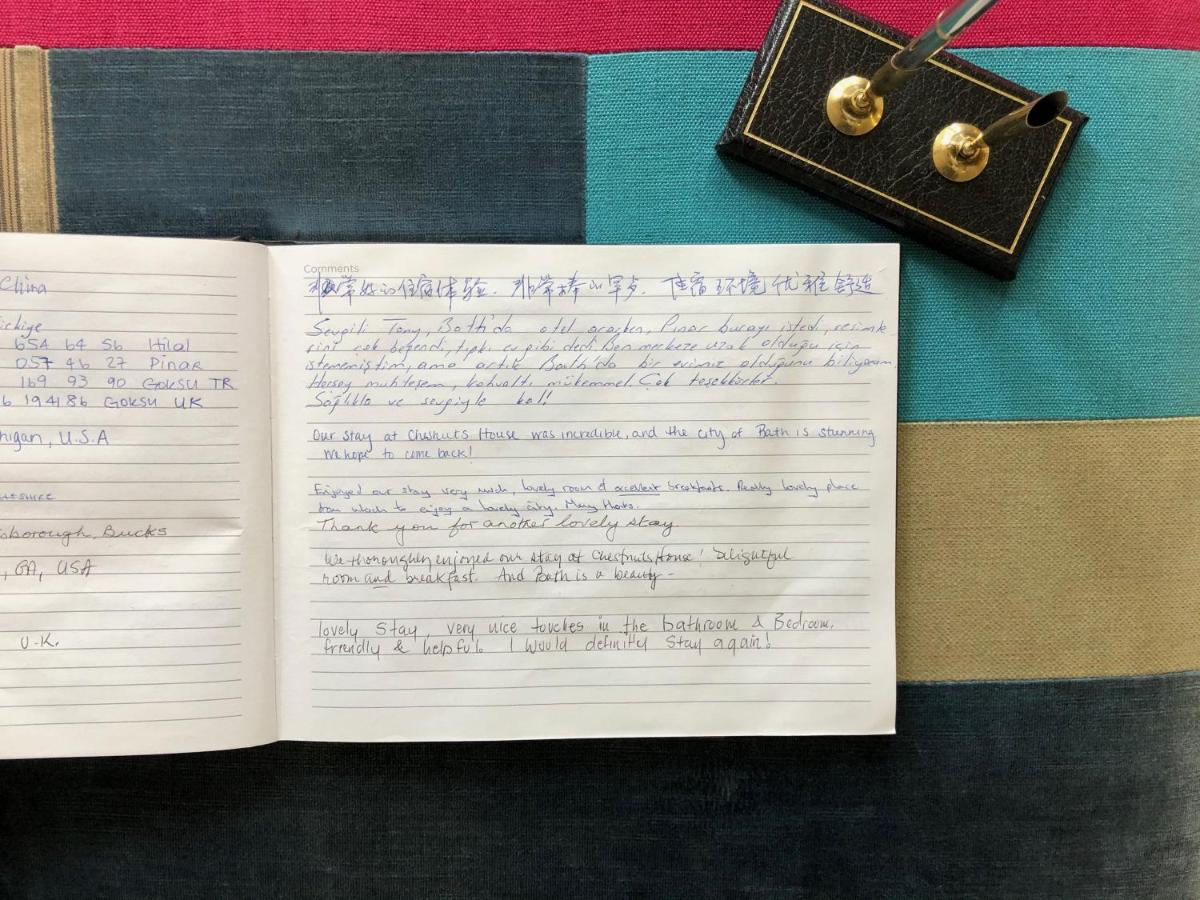 China
654 64 56 Hilal
057 46 27 Pinar
169 93 90 GOKSU TR
194186 GOKSU UK
higan, U.S.A
sborough, Bucks
, GA, USA
U.K.
Comments
非常好的住宿体验. 非常棒的早点. 住宿环境优雅舒适
Sevgili Tony, Bath'da otel ararken, Pınar burayı istedi, resimle
rini çok beğendi, tıpkı ev gibi dedi. Ben merkeze uzak olduğu için
istememiştim, ama artık Bath'da bir evimiz olduğunu biliyorum
Herşey muhteşem, kahvaltı mükemmel. Çok teşekkürler.
Sağlıkla ve sevgiyle kal!
Our stay at Chesnuts House was incredible, and the city of Bath is stunning
We hope to come back!
Enjoyed our stay very much, lovely room & excellent breakfasts. Really lovely place
from which to enjoy a lovely city. Many thanks.
Thank you for another lovely stay.
We thoroughly enjoyed our stay at Chestnuts House! Delightful
room and breakfast. And Bath is a beauty -
lovely stay, very nice touches in the bathroom & Bedroom.
friendly & helpful. I would definitly stay again!